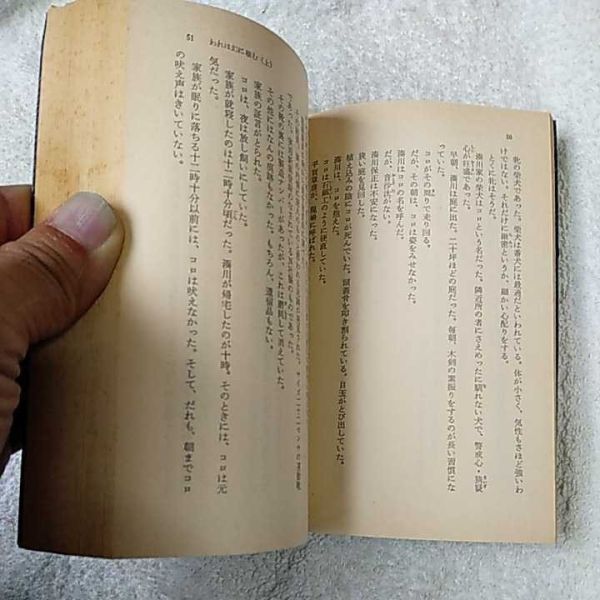 50
牝の柴犬であった。柴犬は番犬には最適といわれている。体が小さく、気性もさほど強いわ
けではない。それだけに緻密というか、細かい心配りをする。
とくに牝はそうだ。
湊川家の柴犬はコロという名だった。隣近所の者にさえめったに馴れない犬で、警戒心・猜疑
心が旺盛であった。
早朝、湊川は庭に出た。二十坪ほどの庭だった。毎朝、木剣の素振りをするのが長い習慣にな
っていた。
コロがその周りで走り回る。
だが、その朝は、コロは姿をみせなかった。
湊川は、コロの名を呼んだ。
だが、音沙汰がない。
湊川保正は不安になった。
狭い庭を見回した。
植え込みの陰にコロが死んでいた。頭蓋骨を叩き割られている。目玉がとび出していた。
湊川は、コロを抱えた。
コロは石細工のように硬直していた。
51 われは幻に棲む(上)
その他にはなんの痕跡もなかった。もちろん、遺留品もない。
家族の証言がとられた。
コロは、夜は放し飼いにしていた。
家族が就寝したのは十二時十分頃だった。湊川が帰宅したのが十時。そのときには、コロは元
気だった。
家族が眠りに落ちる十二時十分以前には、コロは吠えなかった。そして、だれも、朝までコロ
の吠え声はきいていない。